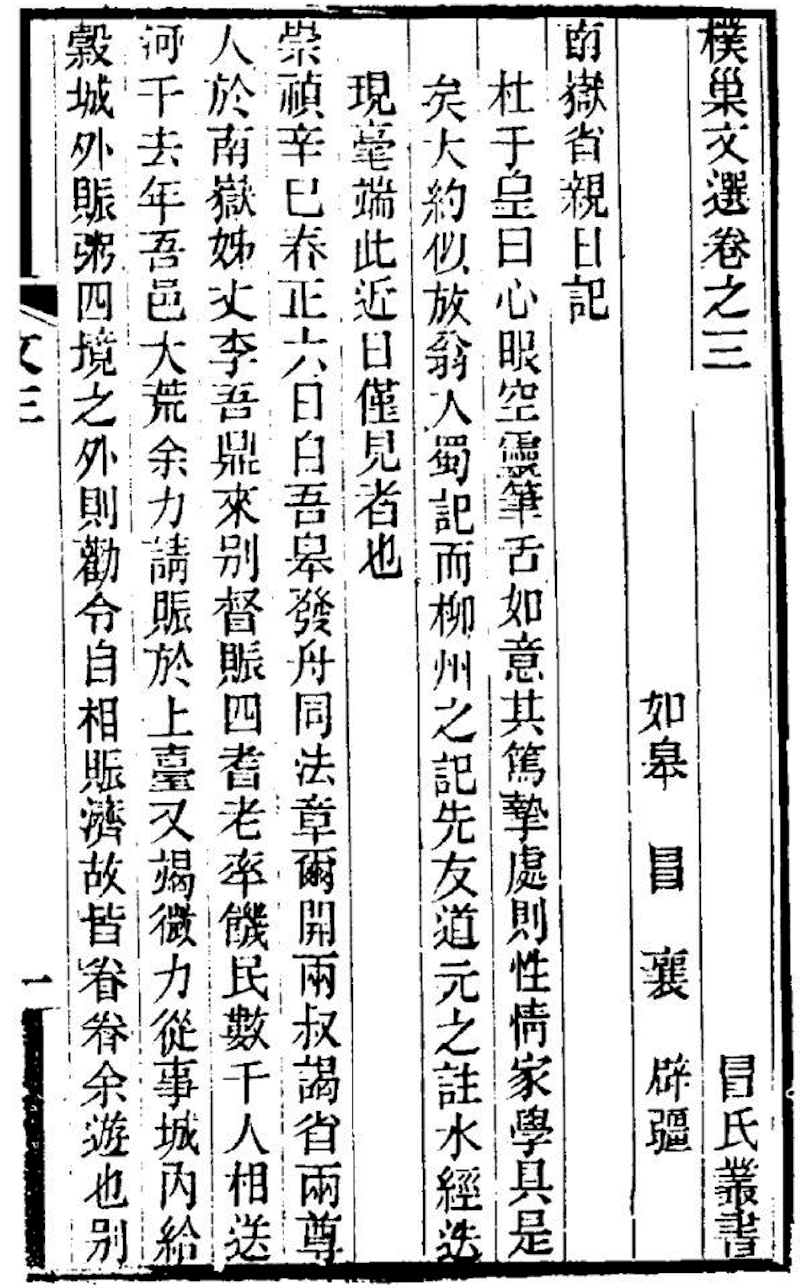 樸巢文選卷之三 冒氏叢書
如皋 冒襄 辟疆
南嶽省親日記
杜于皇曰心眼空靈筆舌如意其篤摯處則性情家學具是
矣大約似放翁入蜀記而柳州之記先友道元之註水經迭
現毫端此近日僅見者也
崇禎辛巳春正六日自吾皋發舟同法章爾開兩叔謁省兩尊
人於南嶽姊丈李吾鼎來别督賑四耆老率饑民數千人相送
河干去年吾邑大荒余力請賑於上臺又竭微力從事城內給
穀城外賑粥四境之外則勸令自相賑濟故皆眷眷余遊也別
文三
一